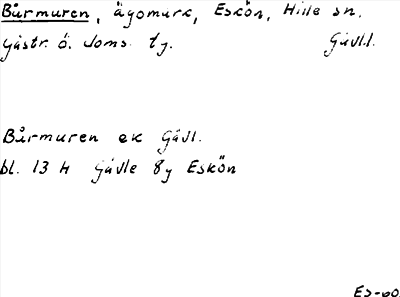 Bårmuren, ägomark, Eskön, Hille sn.
Gästr. ö. doms. tg. Gävl.l.
Bårmuren ek Gävl.
bl. 13 H Gävle 8g Eskön
ES-60